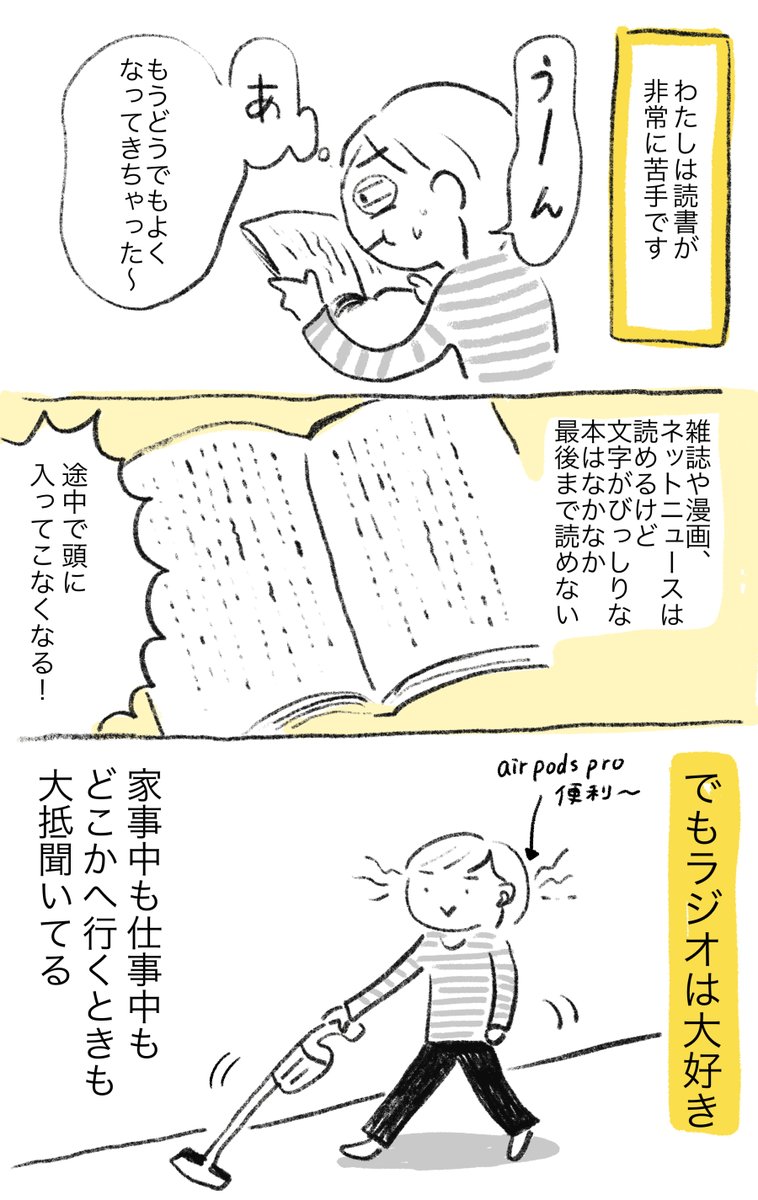 わたしは読書が
非常に苦手です
うーん
あ
もうどうでもよく
なってきちゃった～
雑誌や漫画、
ネットニュースは
読めるけど
文字がびっしりな
本はなかなか
最後まで読めない
途中で頭に
入ってこなくなる！
でもラジオは大好き
air pods pro
便利～
家事中も仕事中も
どこかへ行くときも
大抵聞いてる